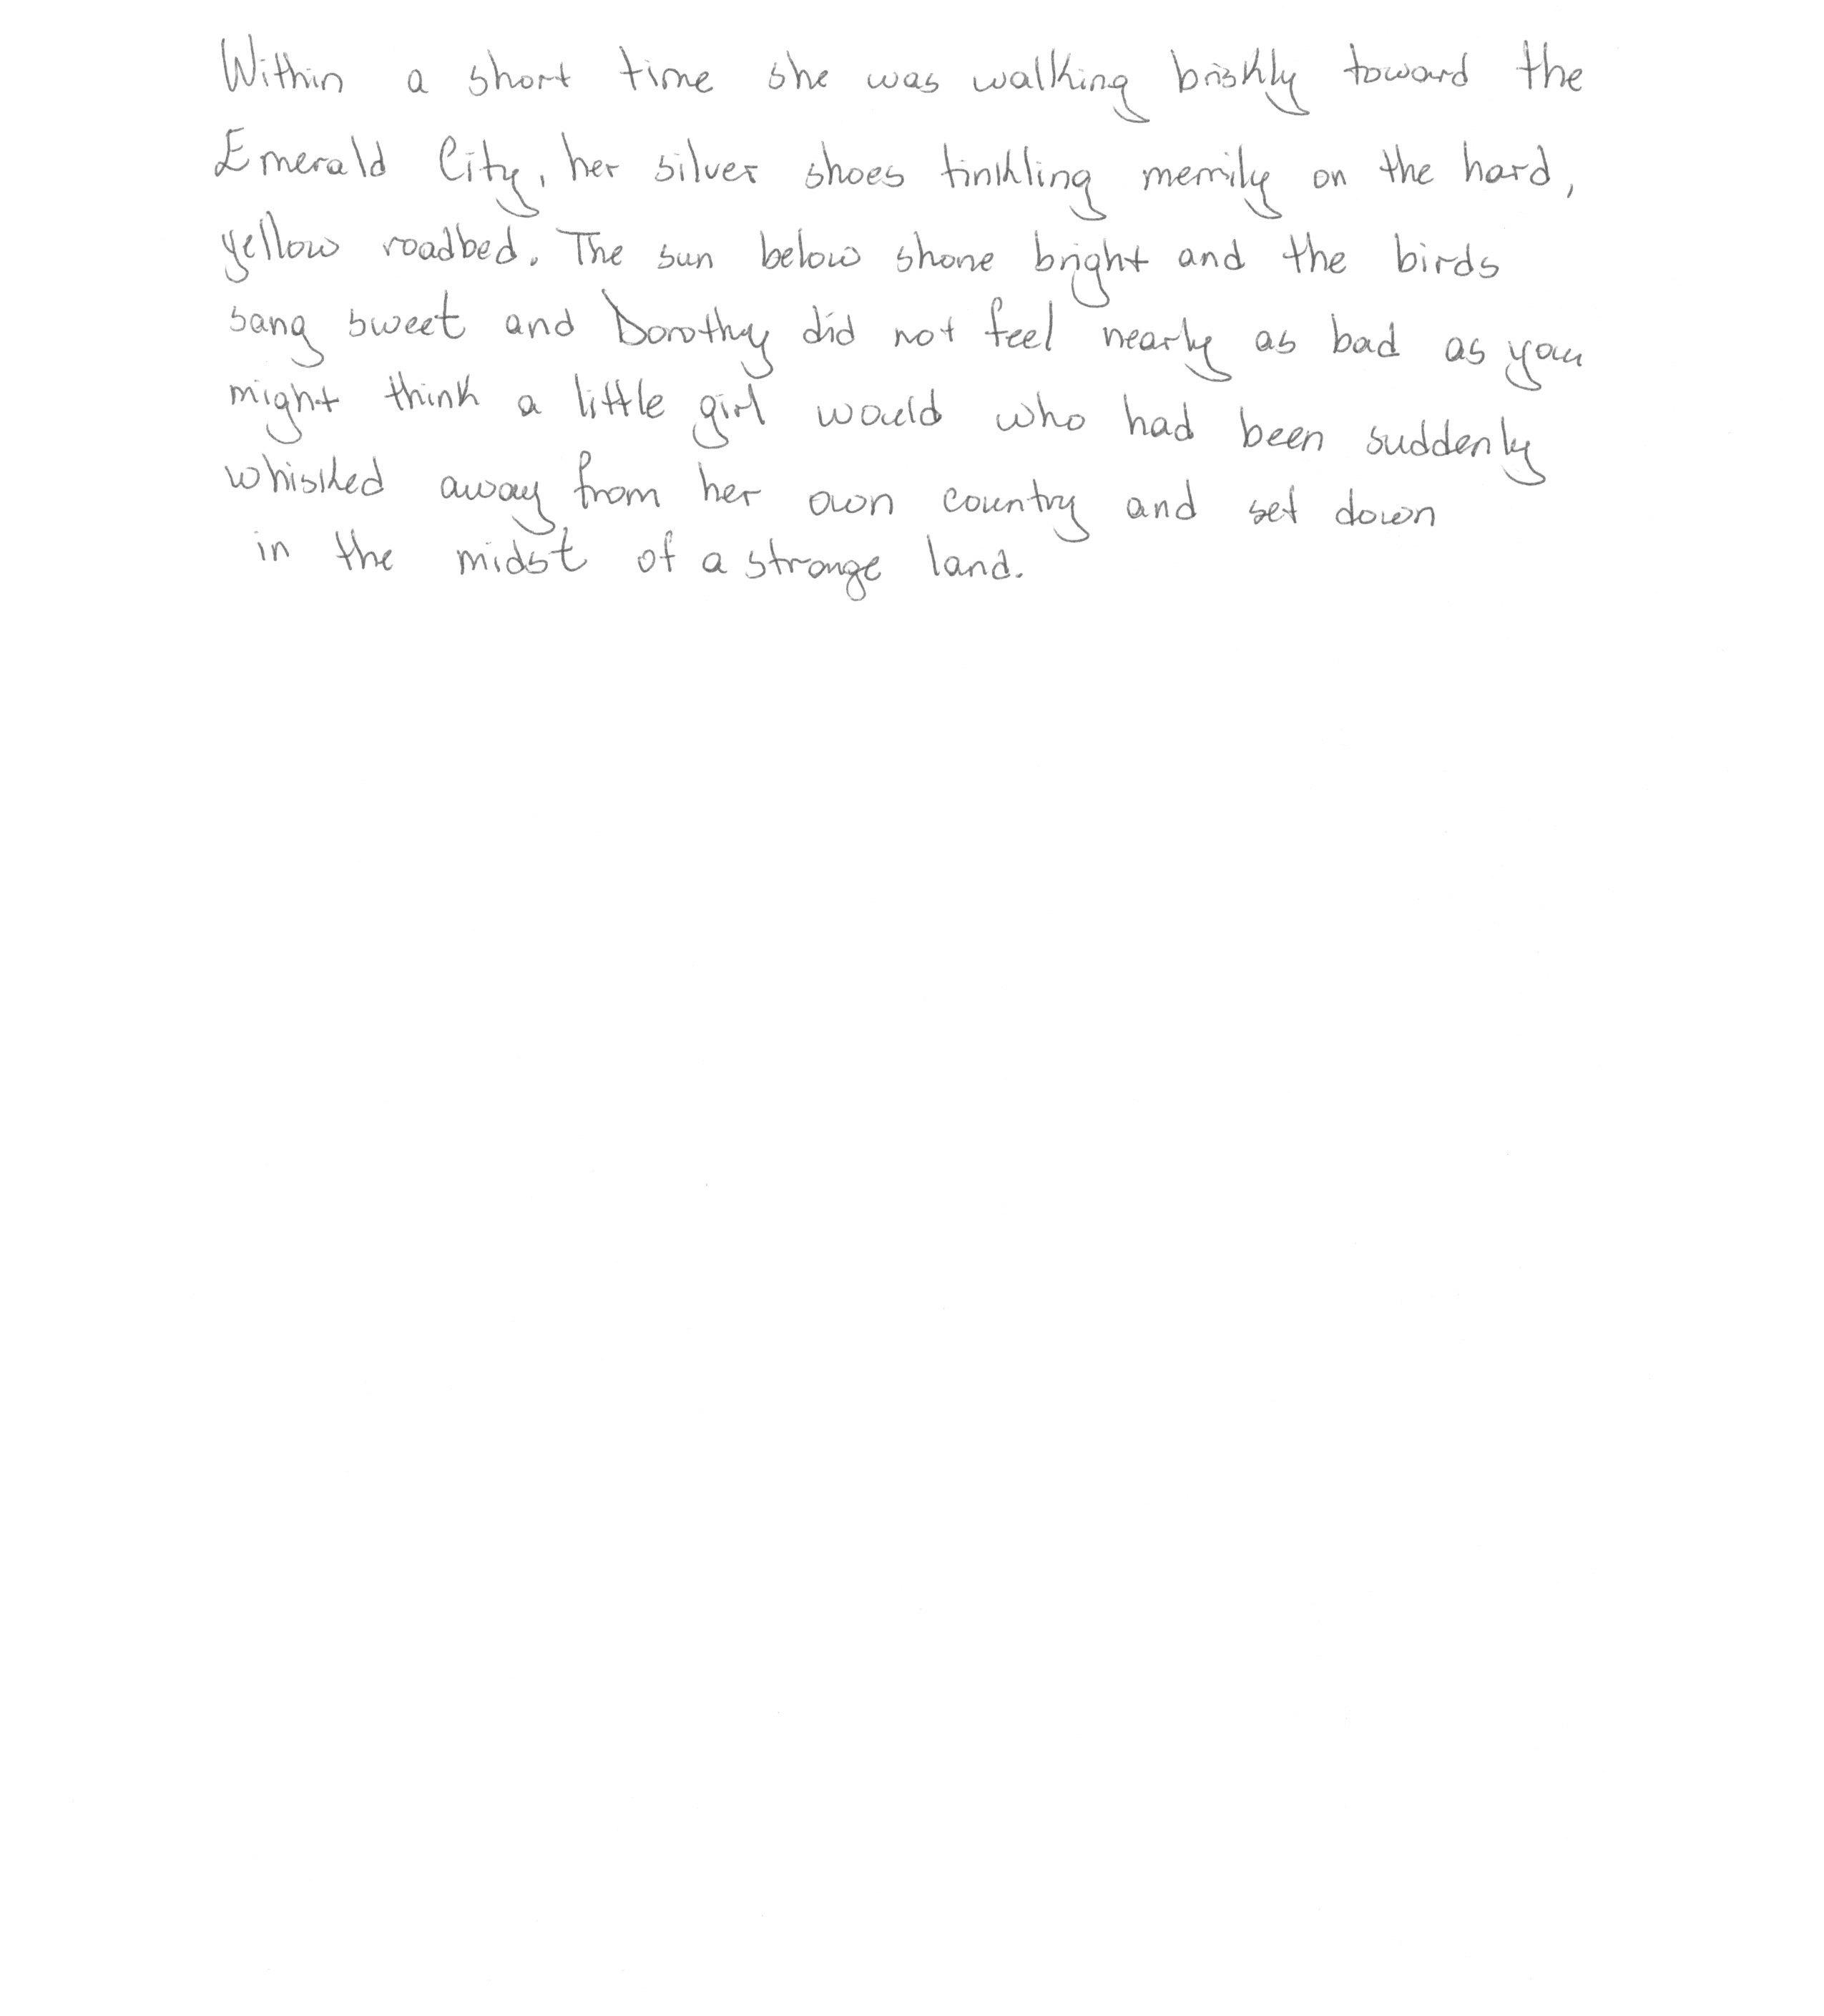 Within a short time she was walking briskly toward the
Emerald City, her silver shoes tinkling merrily on the hard,
yellow roadbed. The sun below shone bright and the birds
sang sweet and Dorothy did not feel nearly as bad as you
might think a little girl would who had been suddenly
whisked away from her own country and set down
in the midst of a strange land.